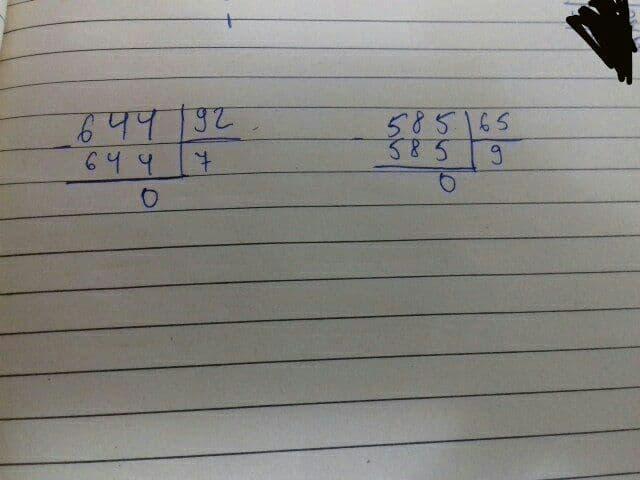 644 92
- 644 7
0
585 65
- 585 9
0